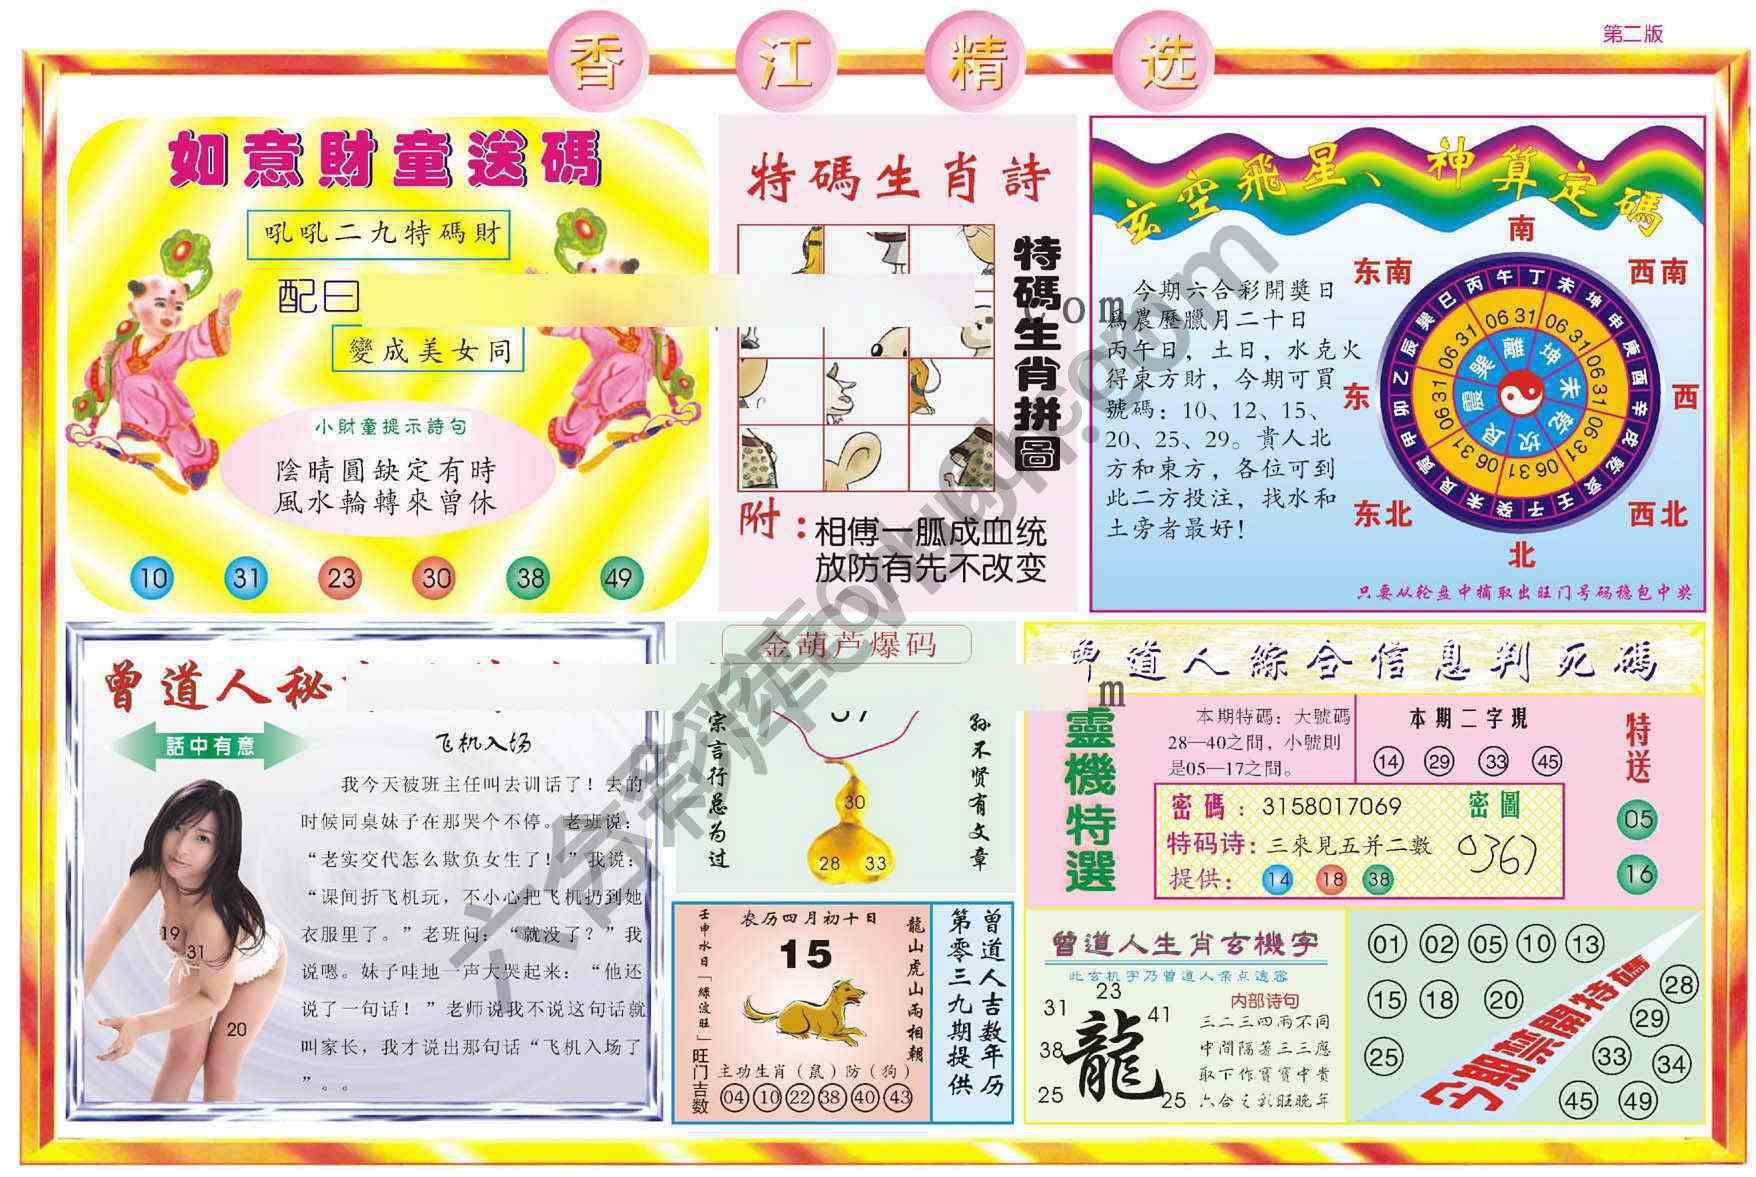 第二版
香江精选
如意財童送碼
吼吼二九特碼財
配曰
變成美女同
小財童提示詩句
陰晴圓缺定有時
風水輪轉來曾休
10 31 23 30 38 49
特碼生肖詩
特碼生肖拼圖
附：
相傅一脈成血统
放防有先不改变
玄空飛星、神算定碼
今期六合彩開獎日
爲農歷臘月二十日
丙午日，土日，水克火
得東方財，今期可買
號碼：10、12、15、
20、25、29。貴人北
方和東方，各位可到
此二方投注，找水和
土旁者最好！
南
东南
西南
东
西
东北
西北
北
只要从轮盘中摘取出旺门号码稳包中奖
曾道人秘
話中有意
飞机入场
我今天被班主任叫去训话了！去的
时候同桌妹子在那哭个不停。老班说：
“老实交代怎么欺负女生了！”我说：
“课间折飞机玩，不小心把飞机扔到她
衣服里了。”老班问：“就没了？”我
说嗯。妹子哇地一声大哭起来：“他还
说了一句话！”老师说我不说这句话就
叫家长，我才说出那句话“飞机入场了
”。。
19
31
20
金葫芦爆码
宗言行总为过
孙不贤有文章
30
28 33
壬申水日「绿波旺」旺门吉数
农历四月初十日
15
主功生肖（鼠）防（狗）
04 10 22 38 40 43
龍山虎山兩相朝
曾道人吉数年历
第零三九期提供
曾道人綜合信息判死碼
靈機特選
本期特碼：大號碼
28—40之間，小號則
是05—17之間。
本期二字現
14 29 33 45
密碼：3158017069
密圖
特码诗：三來見五并二數
0367
提供：14 18 38
特送
05
16
曾道人生肖玄機字
此玄机字乃曾道人亲点透露
23
31
41
38
龍
25
25
内部诗句
三二三四兩不同
中間隔著三三應
取下作寳寳中貴
01 02 05 10 13
15 18 20
28
29
25
33
34
45 49
今期禁開特碼
六合彩库
com